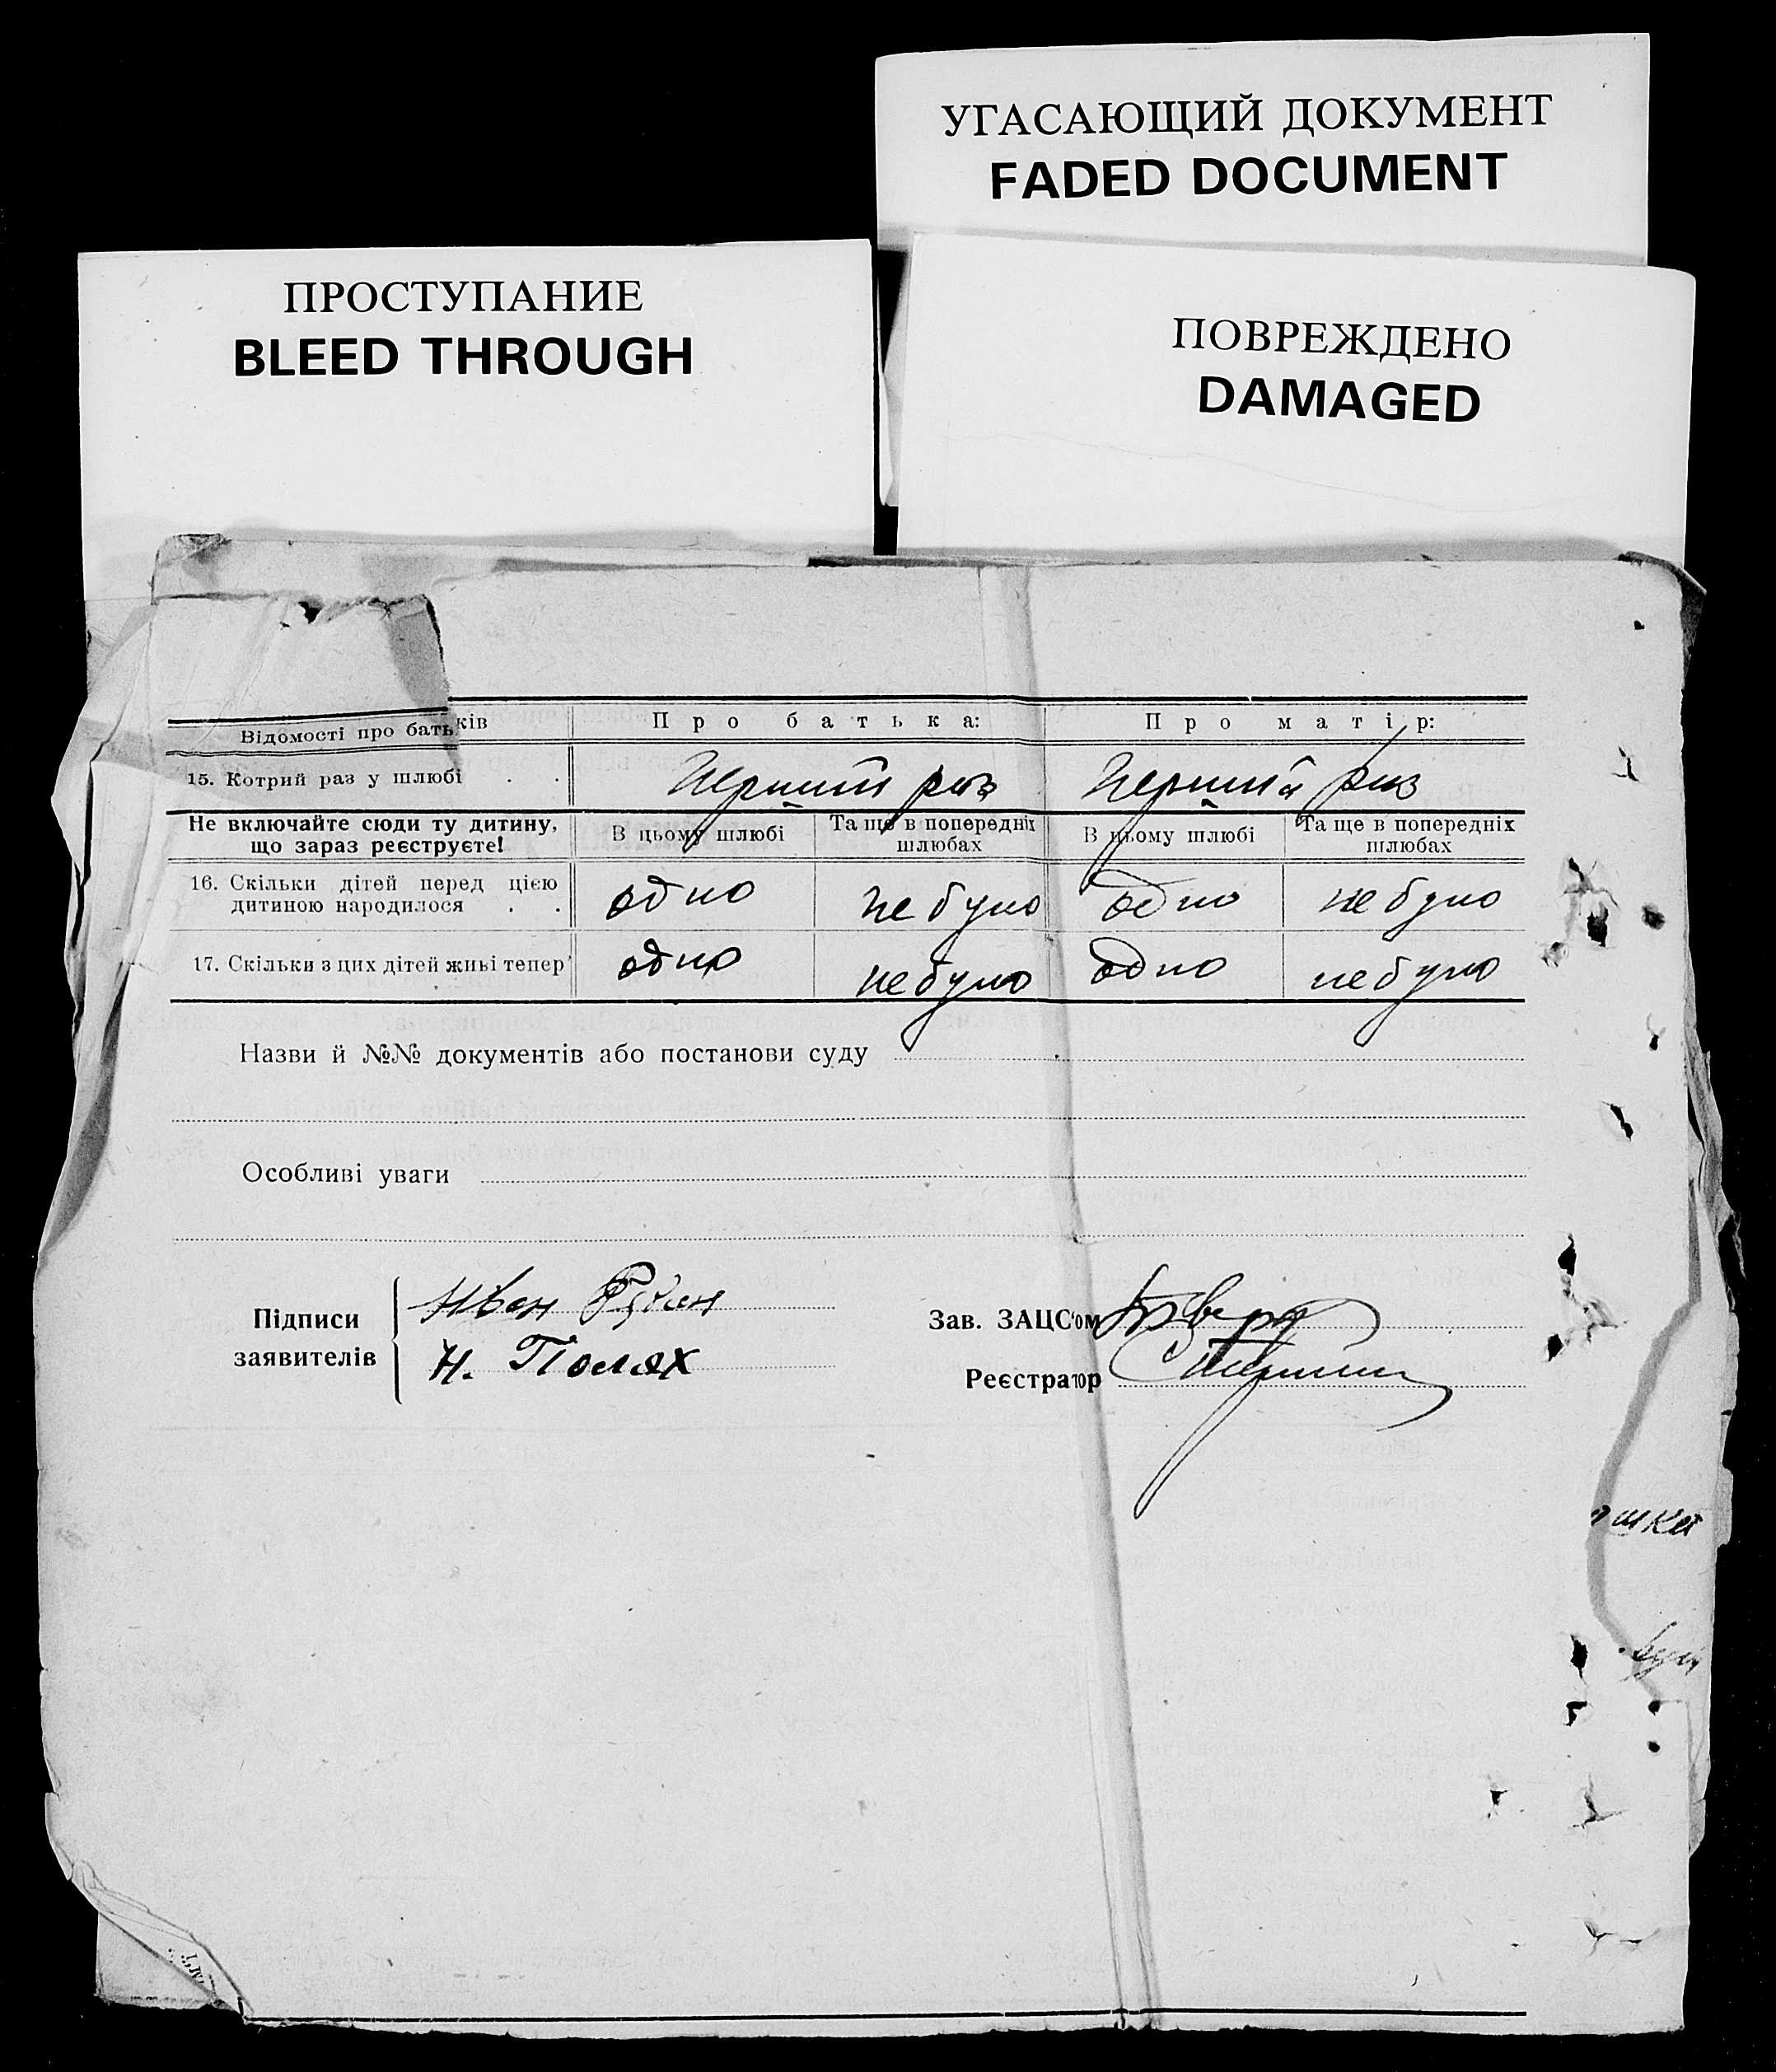 УГАСАЮЩИЙ ДОКУМЕНТ
FADED DOCUMENT
ПРОСТУПАНИЕ
BLEED THROUGH
ПОВРЕЖДЕНО
DAMAGED
Відомості про батьків Про батька: Про матір:
15. Котрий раз у шлюбі . . Перший раз Перший раз
Не включайте сюди ту дитину, що зараз реєструєте! В цьому шлюбі Та ще в попередніх шлюбах В цьому шлюбі Та ще в попередніх шлюбах
16. Скільки дітей перед цією дитиною народилося . . одно не було одно не було
17. Скільки з цих дітей живі тепер одно не було одно не було
Назви й №№ документів або постанови суду
Особливі уваги
Підписи
заявителів
Иван
Н. Полях
Зав. ЗАЦС'ом
Реєстратор